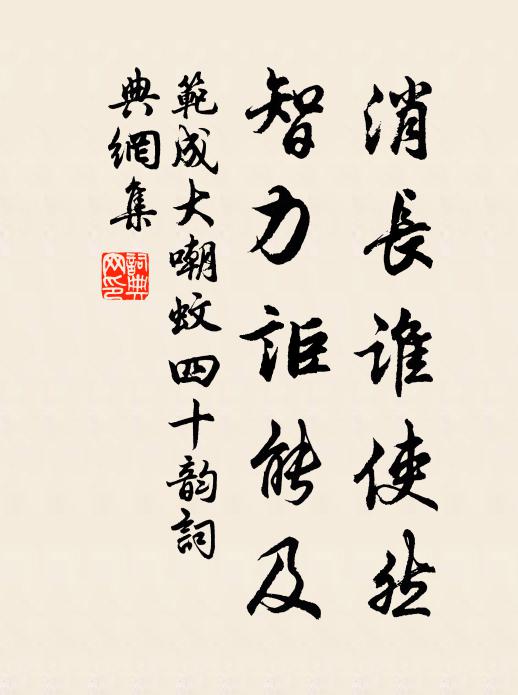 消長誰使然
智力詎能及
範成大嘲蚊四十韵詞
典網集
詞典
网印